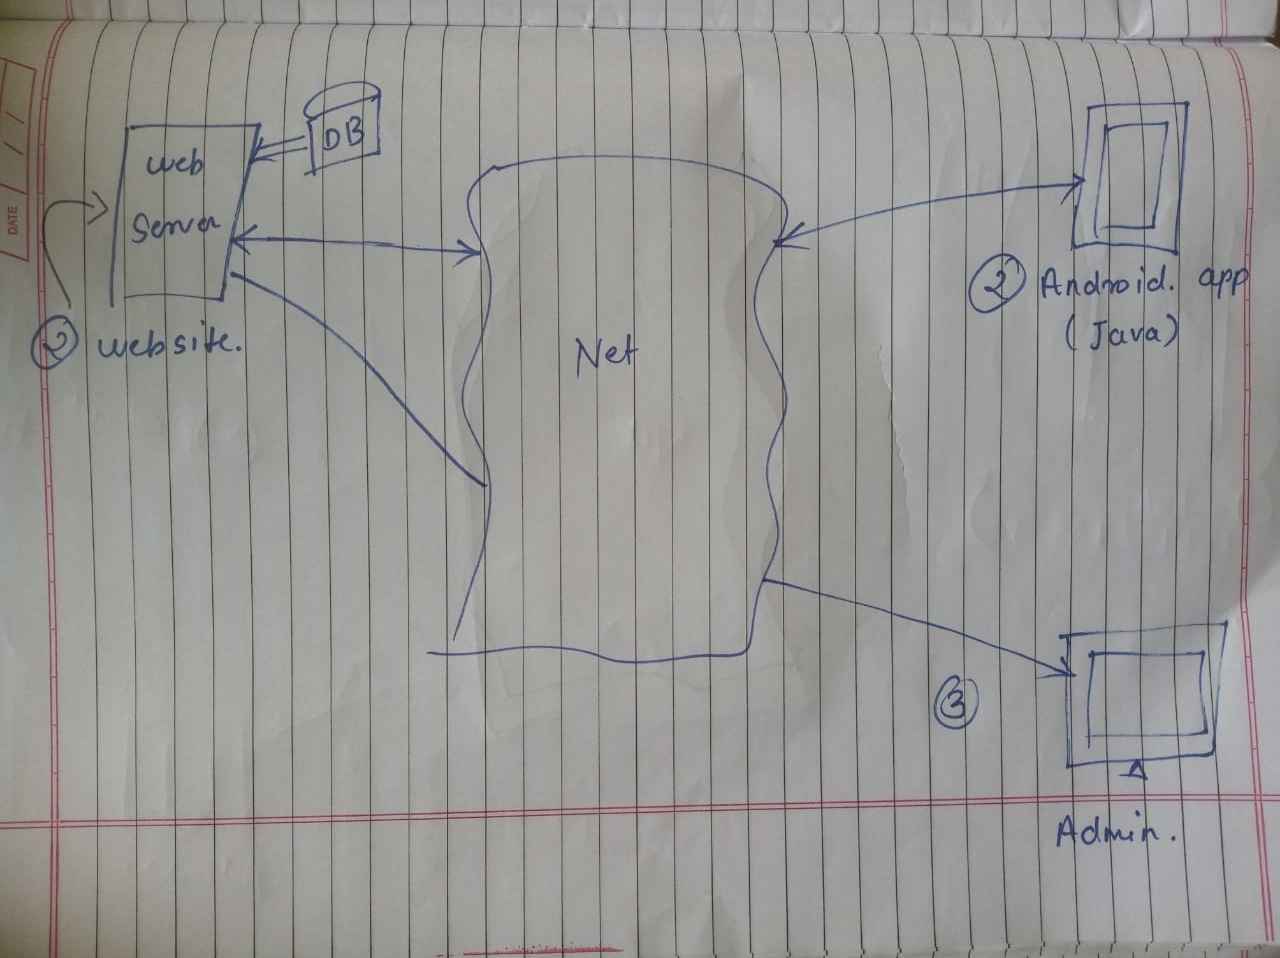 DATE
/ /
DB
Web
Server
2 website.
Net
2 Android. app
(Java)
3
Admin.